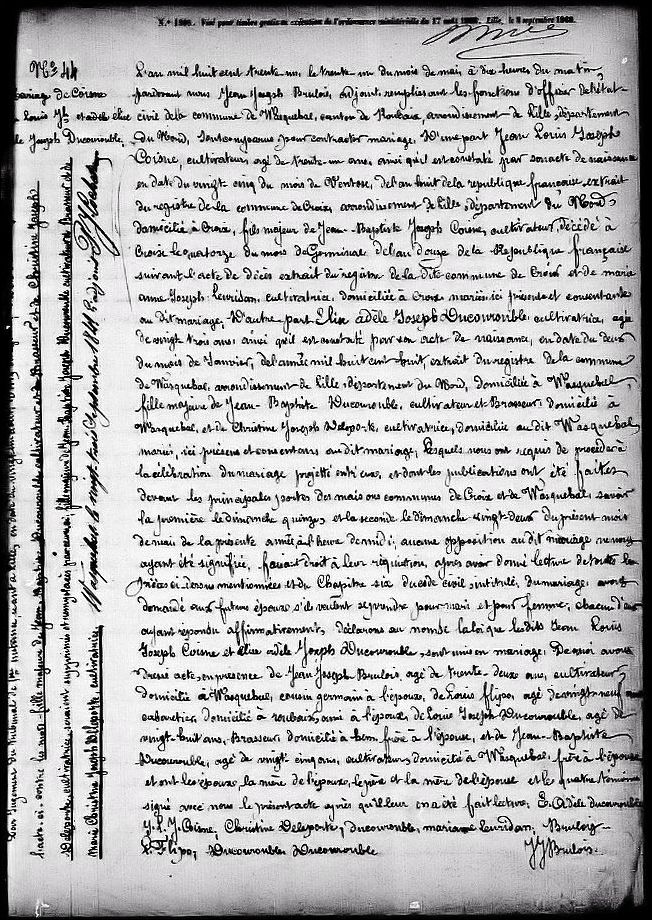 N.° 1906. Visé pour timbre gratis en exécution de l'ordonnance ministérielle du 17 août Lille, le 8 septembre
N.º 44
mariage de Coisne
Louis Jh et adèle élise
Joseph Ducourouble
L'an mil huit cent trente-un, le trente-un du mois de mai, à dix heures du matin,
pardevant nous Jean Joseph Brulois, adjoint, remplissant les fonctions d'officier de l'état-
civil de la commune de Wasquehal, canton de Roubaix, arrondissement de Lille, département
du Nord, sont comparus pour contracter mariage, D'une part Jean Louis Joseph
Coisne, cultivateur, agé de trente-un ans, ainsi qu'il est constaté par son acte de naissance
en date du vingt cinq du mois de Ventose, de l'an huit de la republique francaise, extrait
du registre de la commune de Croix, arrondissement de Lille, département du Nord,
domicilié à Croix, fils majeur de Jean-Baptiste Joseph Coisne, cultivateur, décédé à
Croix le quatorze du mois de Germinal de l'an douze de la République française
suivant l'acte de décès extrait du registre de la dite commune de Croix et de marie
anne Joseph Leuridan, cultivatrice, domiciliée à Croix mariés, ici présente et consentante
au dit mariage, D'autre part Elise adèle Joseph Ducourouble, cultivatrice, agée
de vingt trois ans, ainsi qu'il est constaté par son acte de naissance, en date du deux
du mois de Janvier, de l'année mil huit cent huit, extrait du registre de la commune
de Wasquehal, arrondissement de Lille, département du Nord, domiciliée à Wasquehal,
fille majeure de Jean-Baptiste Ducourouble, cultivateur et Brasseur, domicilié à
Wasquehal, et de Christine Joseph Deleporte, cultivatrice, domiciliée au dit Wasquehal,
mariés, ici présens et consentans au dit mariage, Lesquels nous ont requis de procéder à
la célébration du mariage projetté entr'eux, et dont les publications ont été faites
devant les principales portes des maisons communes de Croix et de Wasquehal, savoir
la première le dimanche quinze, et la seconde le dimanche vingt-deux du présent mois
de mai de la présente année, à l'heure de midi; aucune opposition au dit mariage ne nous
ayant été signifiée, faisant droit à leur réquisition, après avoir donné lecture de toutes les
pièces ci-dessus mentionnées et du Chapitre six du code civil, intitulé, du mariage, avons
demandé aux futurs époux s'ils veulent se prendre pour mari et pour femme, chacun d'eux
ayant répondu affirmativement, déclarons au nom de la loi que lesdits Jean Louis
Joseph Coisne et Elise adèle Joseph Ducourouble, sont unis en mariage. De quoi avons
dressé acte, en présence de Jean Joseph Brulois, agé de trente-deux ans, cultivateur
domicilié à Wasquehal, cousin germain à l'épouse, de Louis flipo, agé de vingt-neuf ans
cabaretier, domicilié à roubaix, ami à l'époux, de Louis Joseph Ducourouble, agé de
vingt-huit ans, Brasseur, domicilié à hem, frère à l'épouse, et de Jean-Baptiste
Ducourouble, agé de vingt-cinq ans, cultivateur, domicilié à Wasquehal, frère à l'épouse
et ont les époux, la mère de l'époux, le père et la mère de l'épouse et les quatre témoins
signé avec nous le présent acte après qu'il leur en a été fait lecture; E. Adèle ducourouble
J. L. J. Coisne, Christine Deleporte, ducourouble, marianne leuridan, Brulois
L. Flipo, Ducourouble Ducourouble
JJ Brulois.
l'acte ci-contre les mots fille majeure de Jean Baptiste Ducourouble cultivateur et Brasseur et de Christine Joseph
Deleporte, cultivatrice, seraient supprimés et remplacés par ceux-ci, fille majeure de Jean Baptiste Joseph Ducourouble cultivateur et Brasseur et de
Marie Christine Joseph Deleporte, cultivatrice. Wasquehal le vingt trois septembre 1841